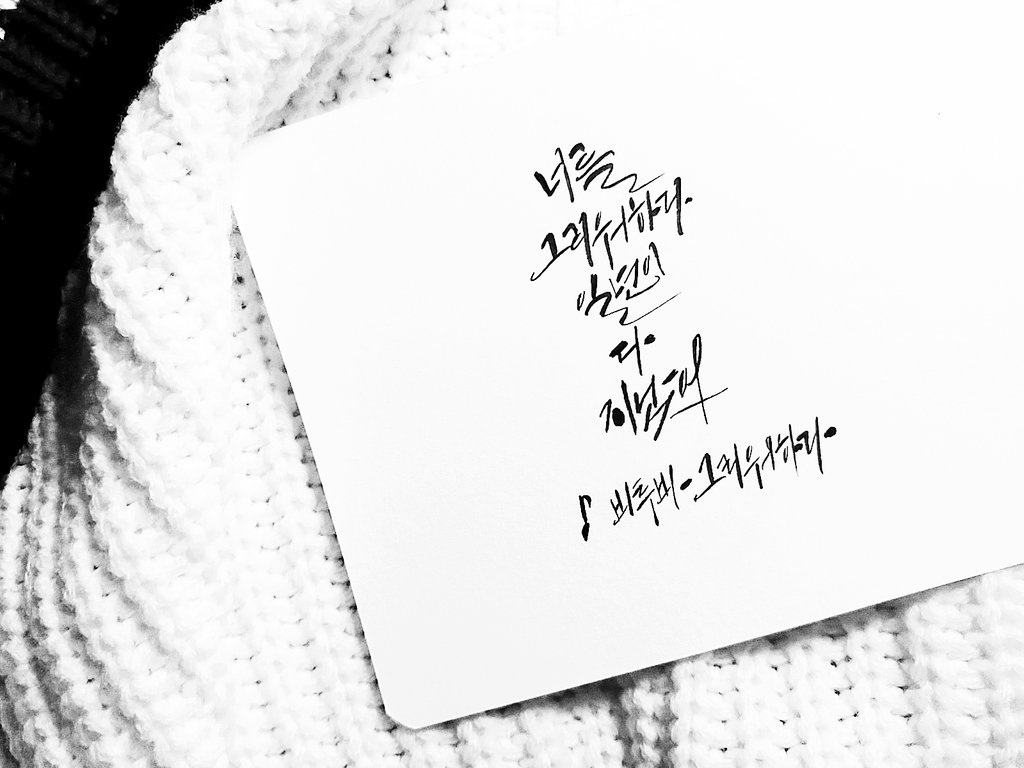 너를
그리워하다
일년이
다
지났어
♪ 비투비 · 그리워하다